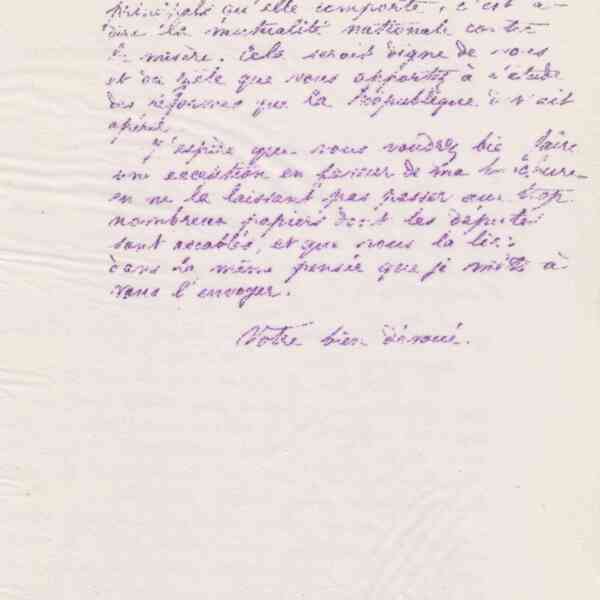 principale qu'elle comporte, c'est à-
dire la mutualité nationale contre
la misère. Cela serait digne de vous
et du zèle que vous apportez à l'étude
des réformes que la République doit
opérer.
J'espère que vous voudrez bien faire
une exception en faveur de ma brochure
en ne la laissant pas passer aux trop
nombreux papiers dont les députés
sont accablés, et que vous la lirez
dans la même pensée que je mets à
vous l'envoyer.
Votre bien dévoué.